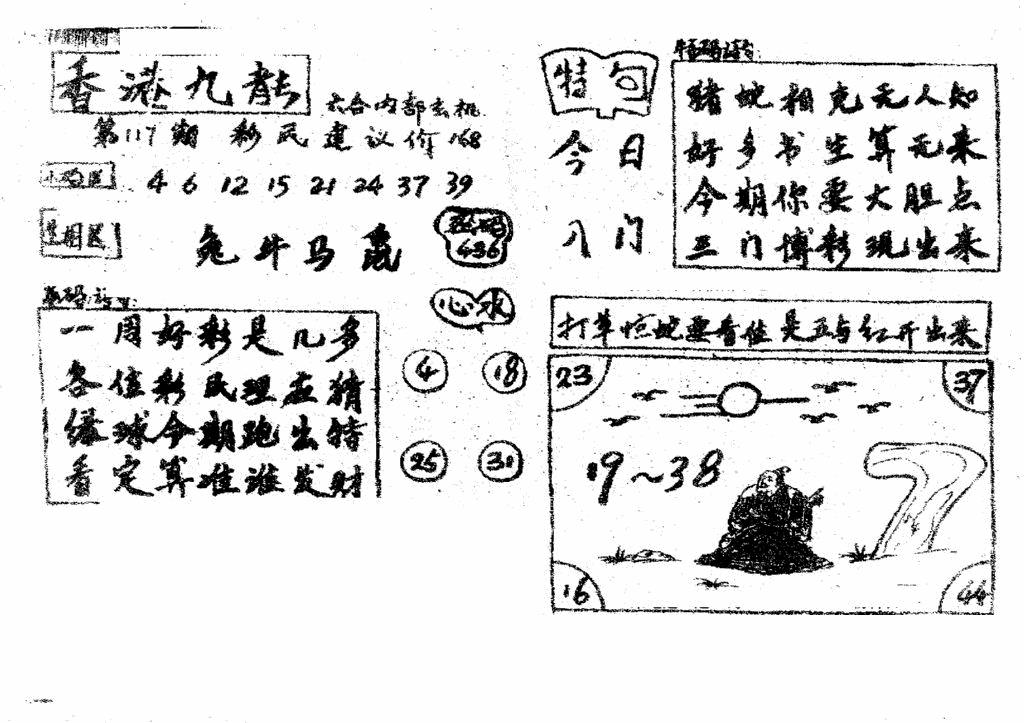 香港九龙
六合内部玄机
第117期 彩民建议价168
4 6 12 15 21 24 37 39
兔牛马鼠
436
一周好彩是几多
各位彩民理应猜
绿球今期跑出特
看定算准谁发财
心水
4 18
25 31
特句
今日
入门
特码诗句:
猪蛇相克无人知
好多书生算无来
今期你要大胆点
三门博彩现出来
打草惊蛇要看住是五与红开出来
23 37
19~38
16 44